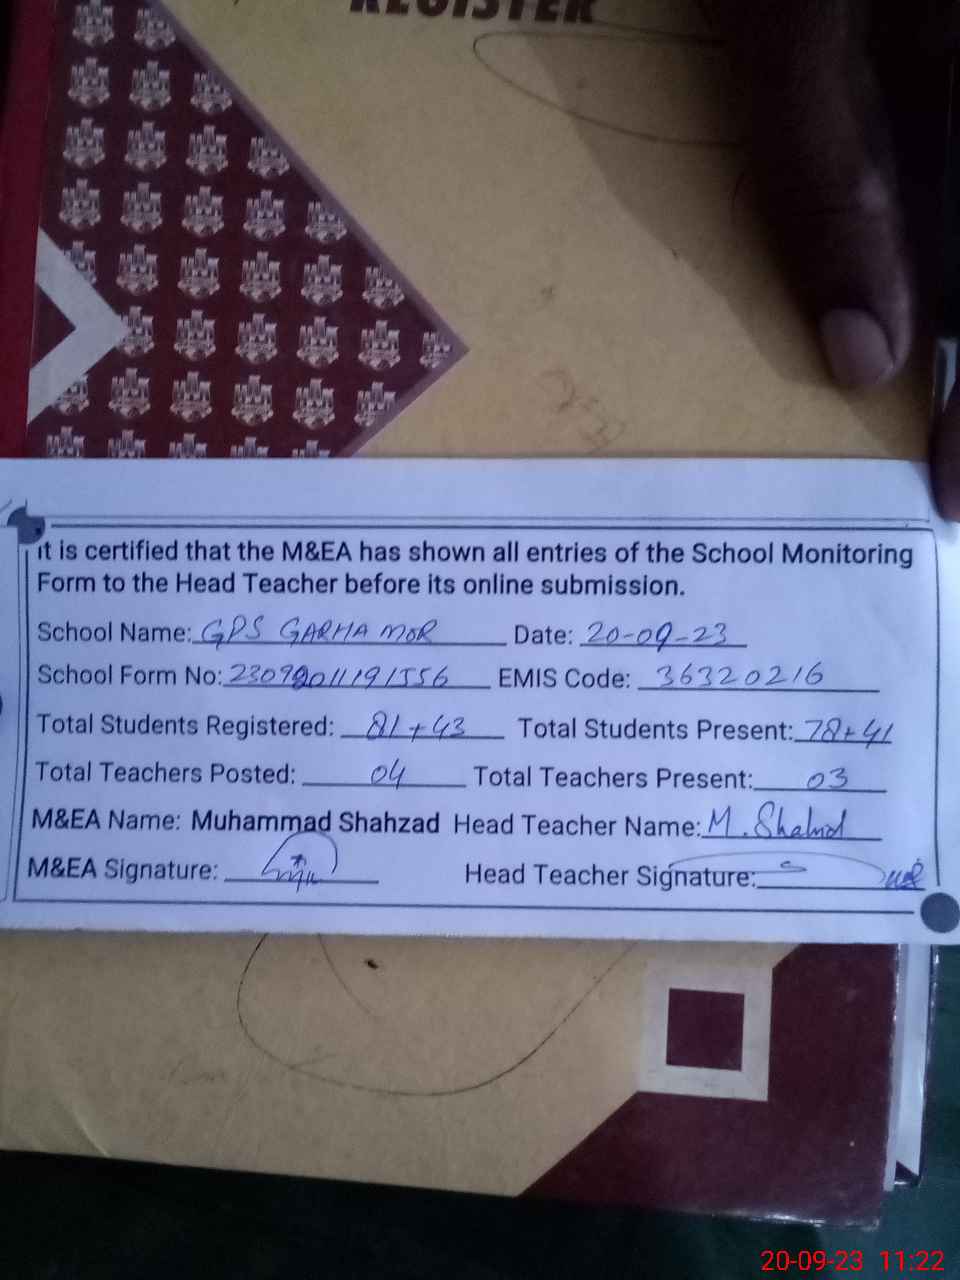 REGISTER
It is certified that the M&EA has shown all entries of the School Monitoring
Form to the Head Teacher before its online submission.
School Name: GPS GARHA MOR Date: 20-09-23
School Form No: EMIS Code: 36320216
Total Students Registered: 81+43 Total Students Present: 78+41
Total Teachers Posted: 04 Total Teachers Present: 03
M&EA Name: Muhammad Shahzad Head Teacher Name: M. Shahid
M&EA Signature: Head Teacher Signature:
20-09-23 11:22